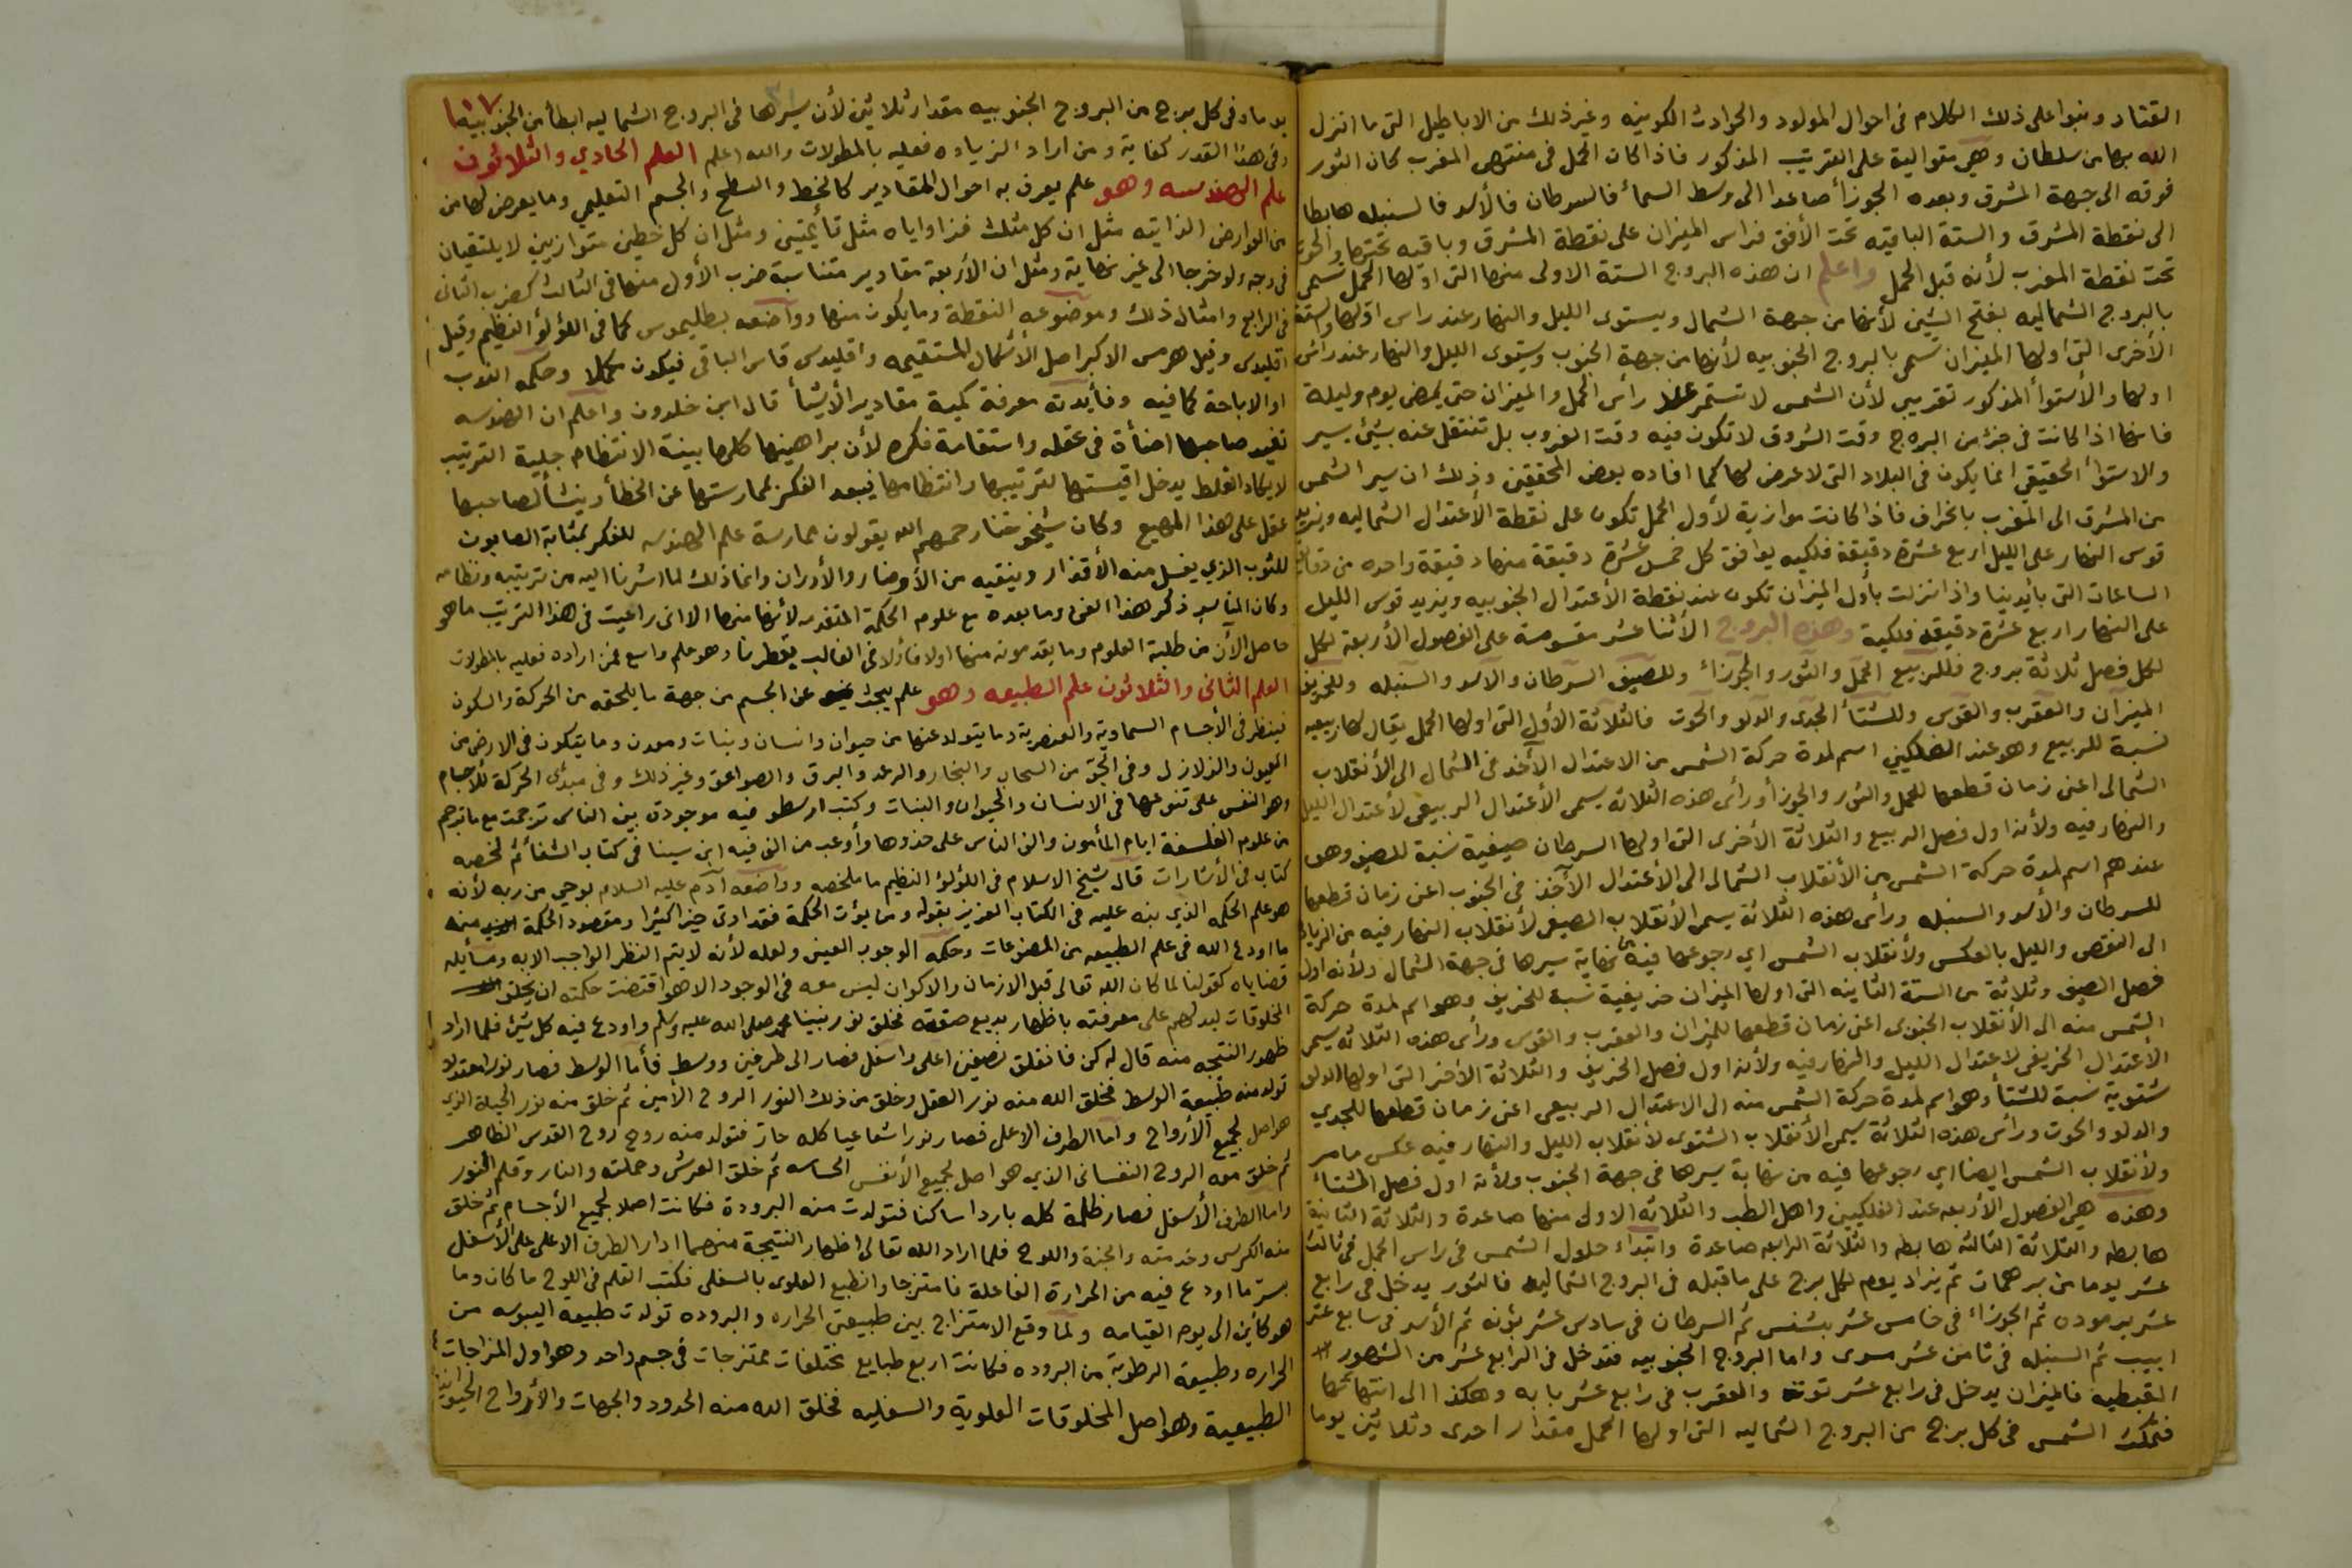 القتاد وبنوا على ذلك الكلام فى احوال المولود والحوادث الكونيه وغير ذلك من الاباطيل التى ما انزل
الله بها من سلطان وهي متوالية على الترتيب المذكور فاذا كان الحمل فى منتهى المغرب كان الثور
فوقه الى جهة المشرق وبعده الجوزأ صاعدا الى وسط السمأ فالسرطان فالأسد فالسنبله هابطا
الى نقطة المشرق والستة الباقيه تحت الأفق فراس الميزان على نقطة المشرق وباقيه تحتها والحوت
تحت نقطة المغرب لأنه قبل الحمل واعلم ان هذه البروج الستة الاولى منها التى اولها الحمل تسمى
بالبروج الشماليه بفتح الشين لأنها من جهة الشمال ويستوى الليل والنهار عند راس اولها والستة
الأخرى التى اولها الميزان تسمى بالبروج الجنوبيه لأنها من جهة الجنوب ويستوى الليل والنهار عند راس
اولها والأستوأ المذكور تقريبي لأن الشمس لا تستمر عند رأس الحمل والميزان حتى يمضى يوم وليلة
فانها اذا كانت فى جزء من البرج وقت الشروق لا تكون فيه وقت الغروب بل تنتقل عنه بشئ يسير
والاستوأ الحقيقى انما يكون فى البلاد التى لا عرض لها كما افاده بعض المحققين وذلك ان سير الشمس
من المشرق الى المغرب بانحراف فاذا كانت موازية لأول الحمل تكون على نقطة الأعتدال الشماليه ويزيد
قوس النهار على الليل اربع عشرة دقيقة فلكيه يوافق كل خمس عشرة دقيقة منها دقيقة واحده من دقايق
الساعات التى بأيدينا واذا نزلت بأول الميزان تكون عند نقطة الأعتدال الجنوبيه ويزيد قوس الليل
على النهار اربع عشرة دقيقة فلكية وهذه البروج الأثنا عشر مقسومة على الفصول الأربعة لكل
لكل فصل ثلاثة بروج فللربيع الحمل والثور والجوزاء وللصيف السرطان والأسد والسنبله وللخريف
الميزان والعقرب والقوس وللشتأ الجدى والدلو والحوت فالثلاثة الأول التى اولها الحمل يقال لها ربيعيه
نسبة للربيع وهو عند الفلكيين اسم لمدة حركة الشمس من الاعتدال الآخذ فى الشمال الى الأنقلاب
الشمالى اعنى زمان قطعها للحمل والثور والجوزأ ورأس هذه الثلاثه يسمى الأعتدال الربيعى لأعتدال الليل
والنهار فيه ولأنه اول فصل الربيع والثلاثة الأخرى التى اولها السرطان صيفية نسبة للصيف وهو
عندهم اسم لمدة حركة الشمس من الأنقلاب الشمالى الى الأعتدال الآخذ فى الجنوب اعنى زمان قطعها
للسرطان والأسد والسنبله ورأس هذه الثلاثة يسمى الأنقلاب الصيفى لأنقلاب النهار فيه من الزيادة
الى النقص والليل بالعكس ولأنقلاب الشمس اي رجوعها فيه نهاية سيرها فى جهة الشمال ولأنه اول
فصل الصيف وثلاثة من الستة الثانيه التى اولها الميزان خريفية نسبة للخريف وهو اسم لمدة حركة
الشمس منه الى الأنقلاب الجنوبى اعنى زمان قطعها للميزان والعقرب والقوس ورأس هذه الثلاثه يسمى
الأعتدال الخريفى لاعتدال الليل والنهار فيه ولأنه اول فصل الخريف والثلاثة الأخر التى اولها الجدى
شتوية نسبة للشتأ وهو اسم لمدة حركة الشمس منه الى الاعتدال الربيعى اعنى زمان قطعها للجدي
والدلو والحوت ورأس هذه الثلاثة يسمى الأنقلاب الشتوى لأنقلاب الليل والنهار فيه عكس مامر
ولأنقلاب الشمس ايضا اي رجوعها فيه من نهاية سيرها فى جهة الجنوب ولأنه اول فصل الشتاء
وهذه هى الفصول الأربعه عند الفلكيين واهل الطب والثلاثه الاولى منها صاعدة والثلاثة الثانية
هابطه والثلاثة الثالثه هابطه والثلاثة الرابعه صاعدة وابتداء حلول الشمس فى راس الحمل فى ثالث
عشر يوما من برمهات ثم يزاد يوم لكل برج على ما قبله فى البروج الشماليه فالثور يدخل فى رابع
عشر برموده ثم الجوزاء فى خامس عشر بشنس ثم السرطان فى سادس عشر بؤنه ثم الأسد فى سابع عشر
ابيب ثم السنبله فى ثامن عشر مسرى واما البروج الجنوبيه فتدخل فى الرابع عشر من الشهور
القبطيه فالميزان يدخل فى رابع عشر توت والعقرب فى رابع عشر بابه وهكذا الى انتهائها
فتمكث الشمس فى كل برج من البروج الشماليه التى اولها الحمل مقدار احدى وثلاثين يوما
١٠٧
وفى كل برج من البروج الجنوبيه مقدار ثلاثين لأن سيرها فى البروج الشماليه ابطأ من الجنوبيه
وفى هذا القدر كفاية ومن اراد الزياده فعليه بالمطولات والله اعلم العلم الحادي والثلاثون
علم الهندسه وهو علم يعرف به احوال المقادير كالخط والسطح والجسم التعليمي وما يعرض لها من
من العوارض الذاتيه مثل ان كل مثلث فزاواياه مثل قأيمتين ومثل ان كل خطين متوازيين لا يلتقيان
فى وجه ولو خرجا الى غير نهاية ومثل ان الأربعة مقادير متناسبة ضرب الأول منها فى الثالث كضرب الثانى
فى الرابع وامثال ذلك وموضوعه النقطة وما يكون منها وواضعه بطليموس كما فى اللؤلؤ النظيم وقيل
اقليدس وقيل هرمس الاكبر اصل الأشكال المستقيمه واقليدس قاس الباقى فيكون مكملا وحكمه الندب
او الاباحة كما فيه وفأيدته معرفة كمية مقادير الأشيأ قال ابن خلدون واعلم ان الهندسه
تفيد صاحبها اضأة فى عقله واستقامة فكره لأن براهينها كلها بينة الانتظام جلية الترتيب
لا يكاد الغلط يدخل اقيستها لترتيبها وانتظامها فيبعد الفكر بممارستها عن الخطأ وينشأ لصاحبها
عقل على هذا المهيع وكان شيوخنا رحمهم الله يقولون ممارسة علم الهندسه للفكر بمثابة الصابون
للثوب الذي يغسل منه الأقذار وينقيه من الأوضار والأدران وانما ذلك لما اشرنا اليه من ترتيبه ونظامه
وكان المناسب ذكر هذا الفن وما بعده مع علوم الحكمة المتقدمه لأنها منها الا انى راعيت فى هذا الترتيب ما هو
حاصل الآن من طلبة العلوم وما يقدمونه منها اولا فأولا فى الغالب بقطرنا وهو علم واسع فمن اراده فعليه بالمطولات
العلم الثانى والثلاثون علم الطبيعه وهو علم يبحث عن الجسم من جهة ما يلحقه من الحركة والسكون
فينظر فى الأجسام السماوية والعنصرية وما يتولد عنها من حيوان وانسان ونبات ومعدن وما يتكون فى الارض من
العيون والزلازل وفى الجو من السحاب والبخار والرعد والبرق والصواعق وغير ذلك وفى مبدئ الحركة للأجسام
وهو النفس على تنوعها فى الانسان والحيوان والنبات وكتب ارسطو فيه موجودة بين الناس ترجمت مع ما ترجم
من علوم الفلسفة ايام المأمون والف الناس على حذوها وأوعب من الف فيه ابن سينا فى كتاب الشفأ ثم لخصه
كتاب فى الأشارات قال شيخ الاسلام فى اللؤلؤ النظيم ما ملخصه وواضعه آدم عليه السلام بوحي من ربه لأنه
هو علم الحكمه الذي نبه عليه فى الكتاب العزيز بقوله ومن يؤت الحكمة فقد اوتى خيرا كثيرا ومقصود الحكمة منه
ما اودع الله فى علم الطبيعه من المصنوعات وحكمه الوجوب العينى ولعله لأنه لا يتم النظر الواجب الا به ومسأيله
قضاياه كقولنا لما كان الله تعالى قبل الازمان والاكوان ليس معه فى الوجود الا هو اقتضت حكمته ان يخلق
المخلوقات ليدلهم على معرفته باظهار بديع صنعته فخلق نور نبينا محمد صلى الله عليه وسلم واودع فيه كل شئ فلما اراد
ظهور النتيجه منه قال له كن فانفلق نصفين اعلى واسفل فصار الى طرفين ووسط فأما الوسط فصار نورا معتدلا
تولد منه طبيعة الوسط فخلق الله منه نور العقل وخلق من ذلك النور الروح الأمين ثم خلق منه نور الحياة الذى
هو اصل لجميع الأرواح واما الطرف الاعلى فصار نورا شعاعيا كله حار فتولد منه روح روح القدس الظاهر
ثم خلق معه الروح النفسانى الذي هو اصل لجميع الأنفس الحساسه ثم خلق العرش وحملته والنار وقلم النور
واما الطرف الأسفل فصار ظلمة كله باردا ساكنا فتولدت منه البرودة فكانت اصلا لجميع الأجسام ثم خلق
منه الكرسى وخدمته والجنة واللوح فلما اراد الله تعالى اظهار النتيجة منهما ادار الطرف الاعلى على الأسفل
بستر ما اودع فيه من الحرارة الفاعلة فامتزجا وانطبع العلوى بالسفلى فكتب القلم فى اللوح ما كان وما
هو كأين الى يوم القيامه ولما وقع الامتزاج بين طبيعتى الحراره والبروده تولدت طبيعة اليبوسه من
الحراره وطبيعة الرطوبة من البروده فكانت اربع طبايع مختلفات ممتزجات فى جسم واحد وهو اول المزاجات
الطبيعية وهو اصل المخلوقات العلوية والسفليه فخلق الله منه الحدود والجهات والأرواح الحيوانيه